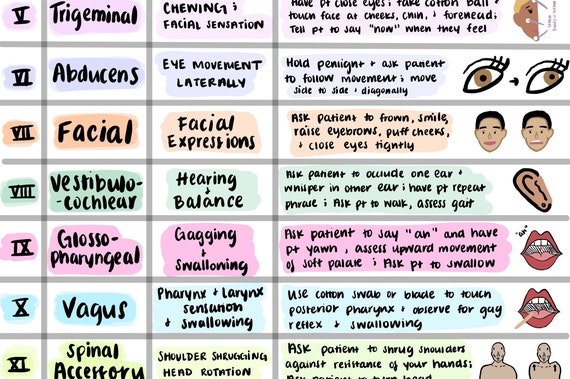 V
Trigeminal
CHEWING ;
FACIAL SENSATION
Have pt close eyes ; take cotton ball &
touch face at cheeks, chin, & forehead;
Tell pt to say "now" when they feel
VI
Abducens
EYE MOVEMENT
LATERALLY
Hold penlight & ask patient
to follow movement ; move
side to side & diagonally
VII
Facial
Facial
Expressions
ASK patient to frown, smile,
raise eyebrows, puff cheeks,
& close eyes tightly
VIII
Vestibulo-
-cochlear
Hearing
&
Balance
ASK patient to occlude one ear &
whisper in other ear ; have pt repeat
phrase ; ASK pt to walk, assess gait
IX
Glosso-
pharyngeal
Gagging
&
Swallowing
ASK patient to say "ah" and have
pt yawn , assess upward movement
of soft palate ; ASK pt to swallow
"ah"
X
Vagus
Pharynx & Larynx
sensation
& swallowing
Use cotton swab or blade to touch
posterior pharynx & observe for gag
reflex & swallowing
XI
Spinal
Accessory
SHOULDER SHRUGGING
HEAD ROTATION
ASK patient to shrug shoulders
against resistance of your hands;
ASK patient to turn head